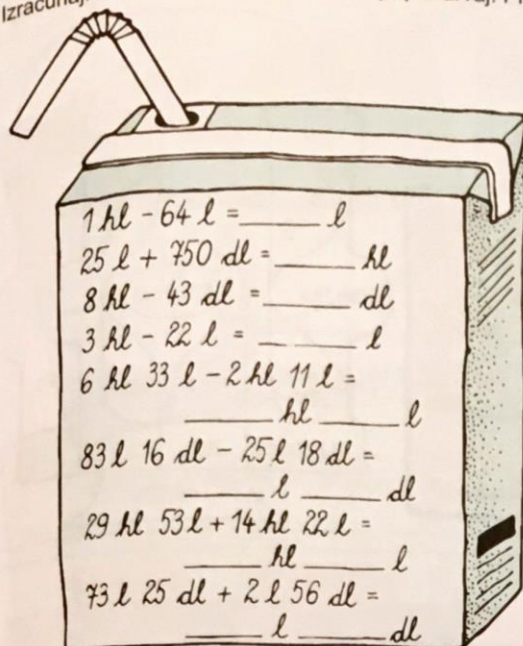 Izračunaj.
1 hl - 64 l = ______ l
25 l + 750 dl = ______ hl
8 hl - 43 dl = ______ dl
3 hl - 22 l = __ ____ l
6 hl 33 l - 2 hl 11 l =
______ hl ______ l
83 l 16 dl - 25 l 18 dl =
_____ l _____ dl
29 hl 53 l + 14 hl 22 l =
_____ hl _____ l
73 l 25 dl + 2 l 56 dl =
_____ l _____ dl